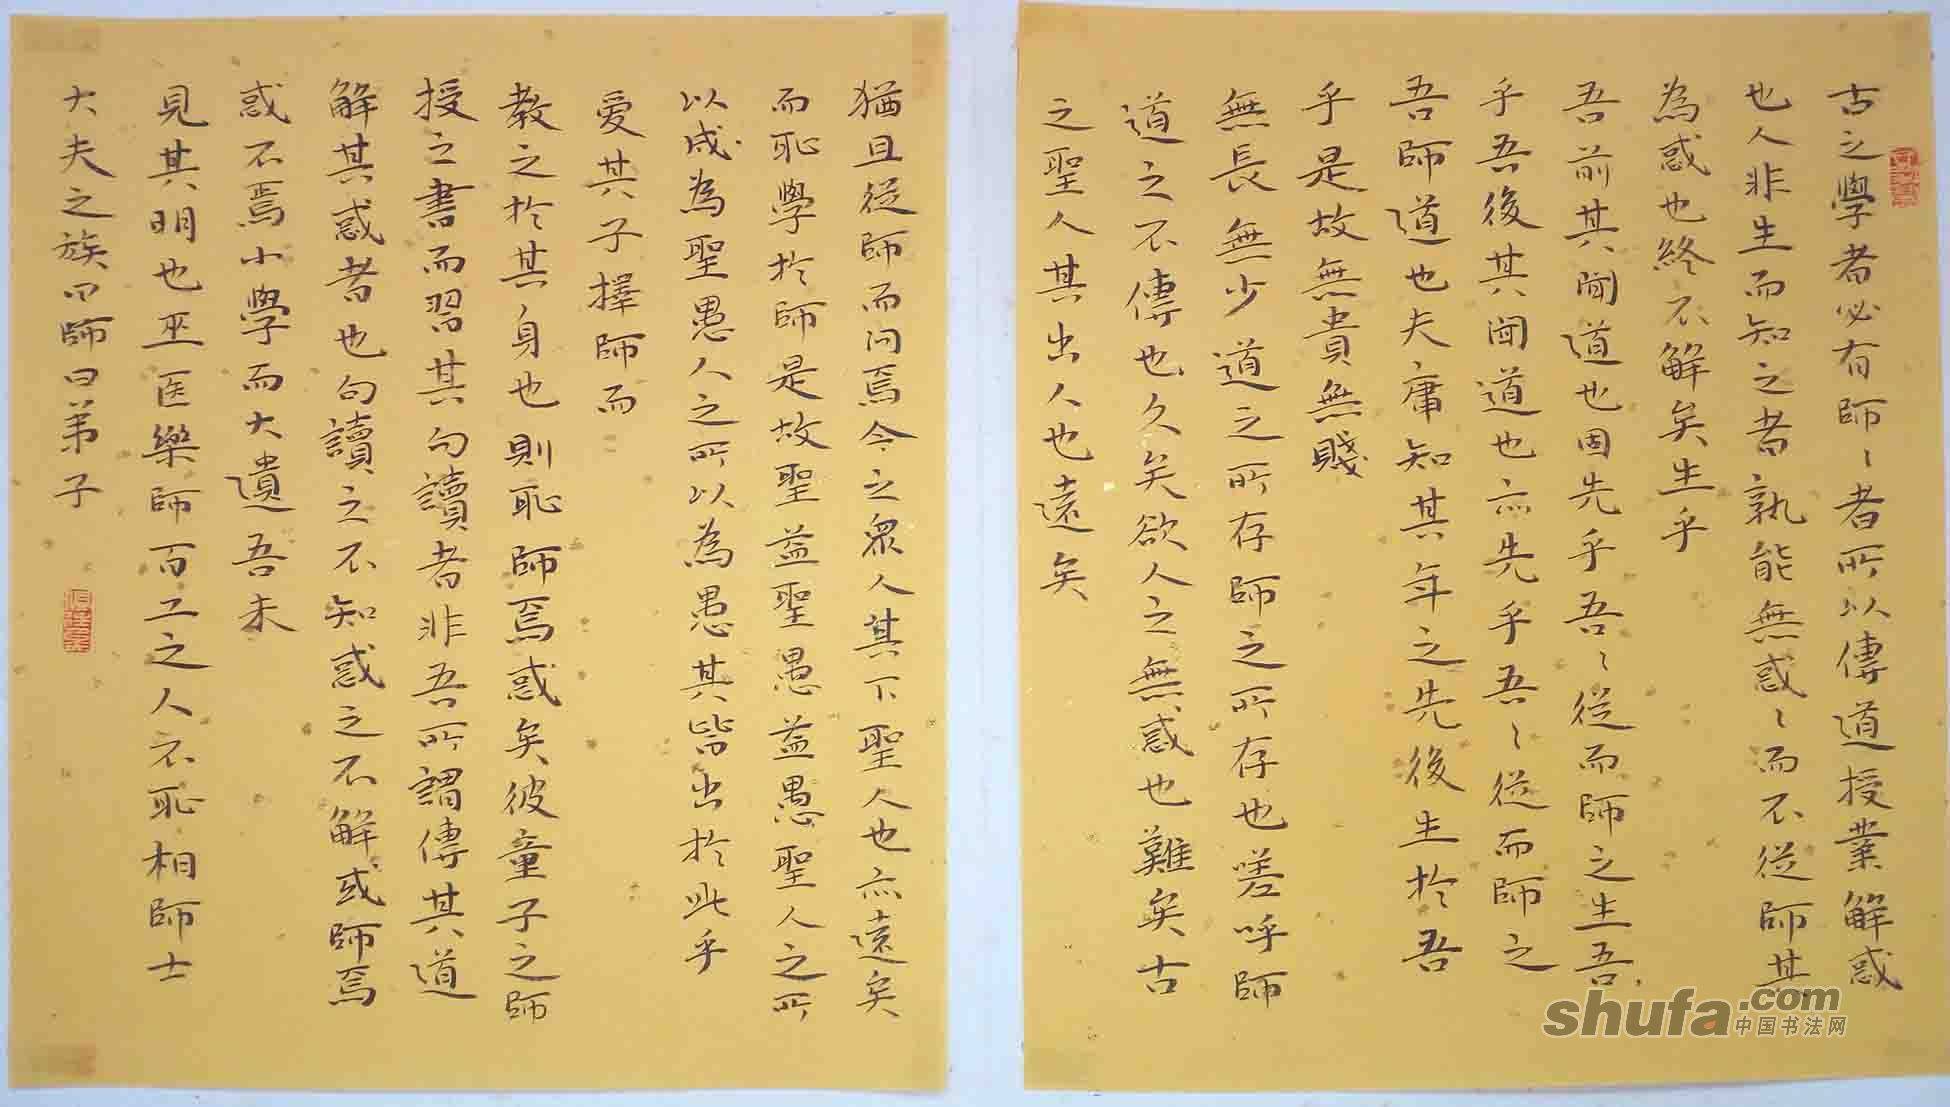 古之學者必有師〻者所以傳道授業解惑
也人非生而知之者孰能無惑〻而不從師其
為惑也終不解矣生乎
吾前其聞道也固先乎吾〻從而師之生吾
乎吾後其聞道也亦先乎吾〻從而師之
吾師道也夫庸知其年之先後生於吾
乎是故無貴無賤
無長無少道之所存師之所存也嗟呼師
道之不傳也久矣欲人之無惑也難矣古
之聖人其出人也遠矣
猶且從師而问焉今之衆人其下聖人也亦遠矣
而恥學於師是故聖益聖愚益愚聖人之所
以成為聖愚人之所以為愚其皆出於此乎
愛其子擇師而
教之於其身也則恥師焉惑矣彼童子之師
授之書而習其句讀者非吾所謂傳其道
解其惑者也句讀之不知惑之不解或師焉
惑不焉小學而大遺吾未
見其明也巫医樂師百工之人不恥相師士
大夫之族曰師曰弟子
shufa.com
中国书法网